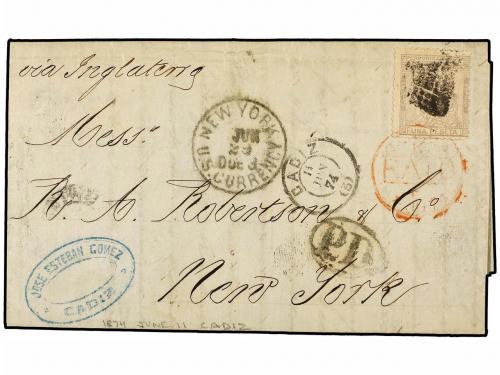 via Inglaterra
Mess.
R. A. Robertson & Co.
New York
NEW YORK
JUN
DUE
U.S. CURRENCY
CADIZ
11
JUN
74
(5)
PD
UNA PESETA
JOSE ESTEBAN GOMEZ
CADIZ
1874 JUNE 11 CADIZ